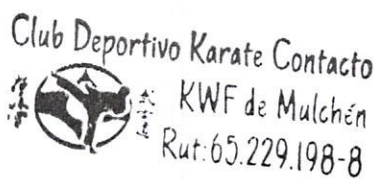 Club Deportivo Karate Contacto
KWF de Mulchén
Rut: 65.229.198-8